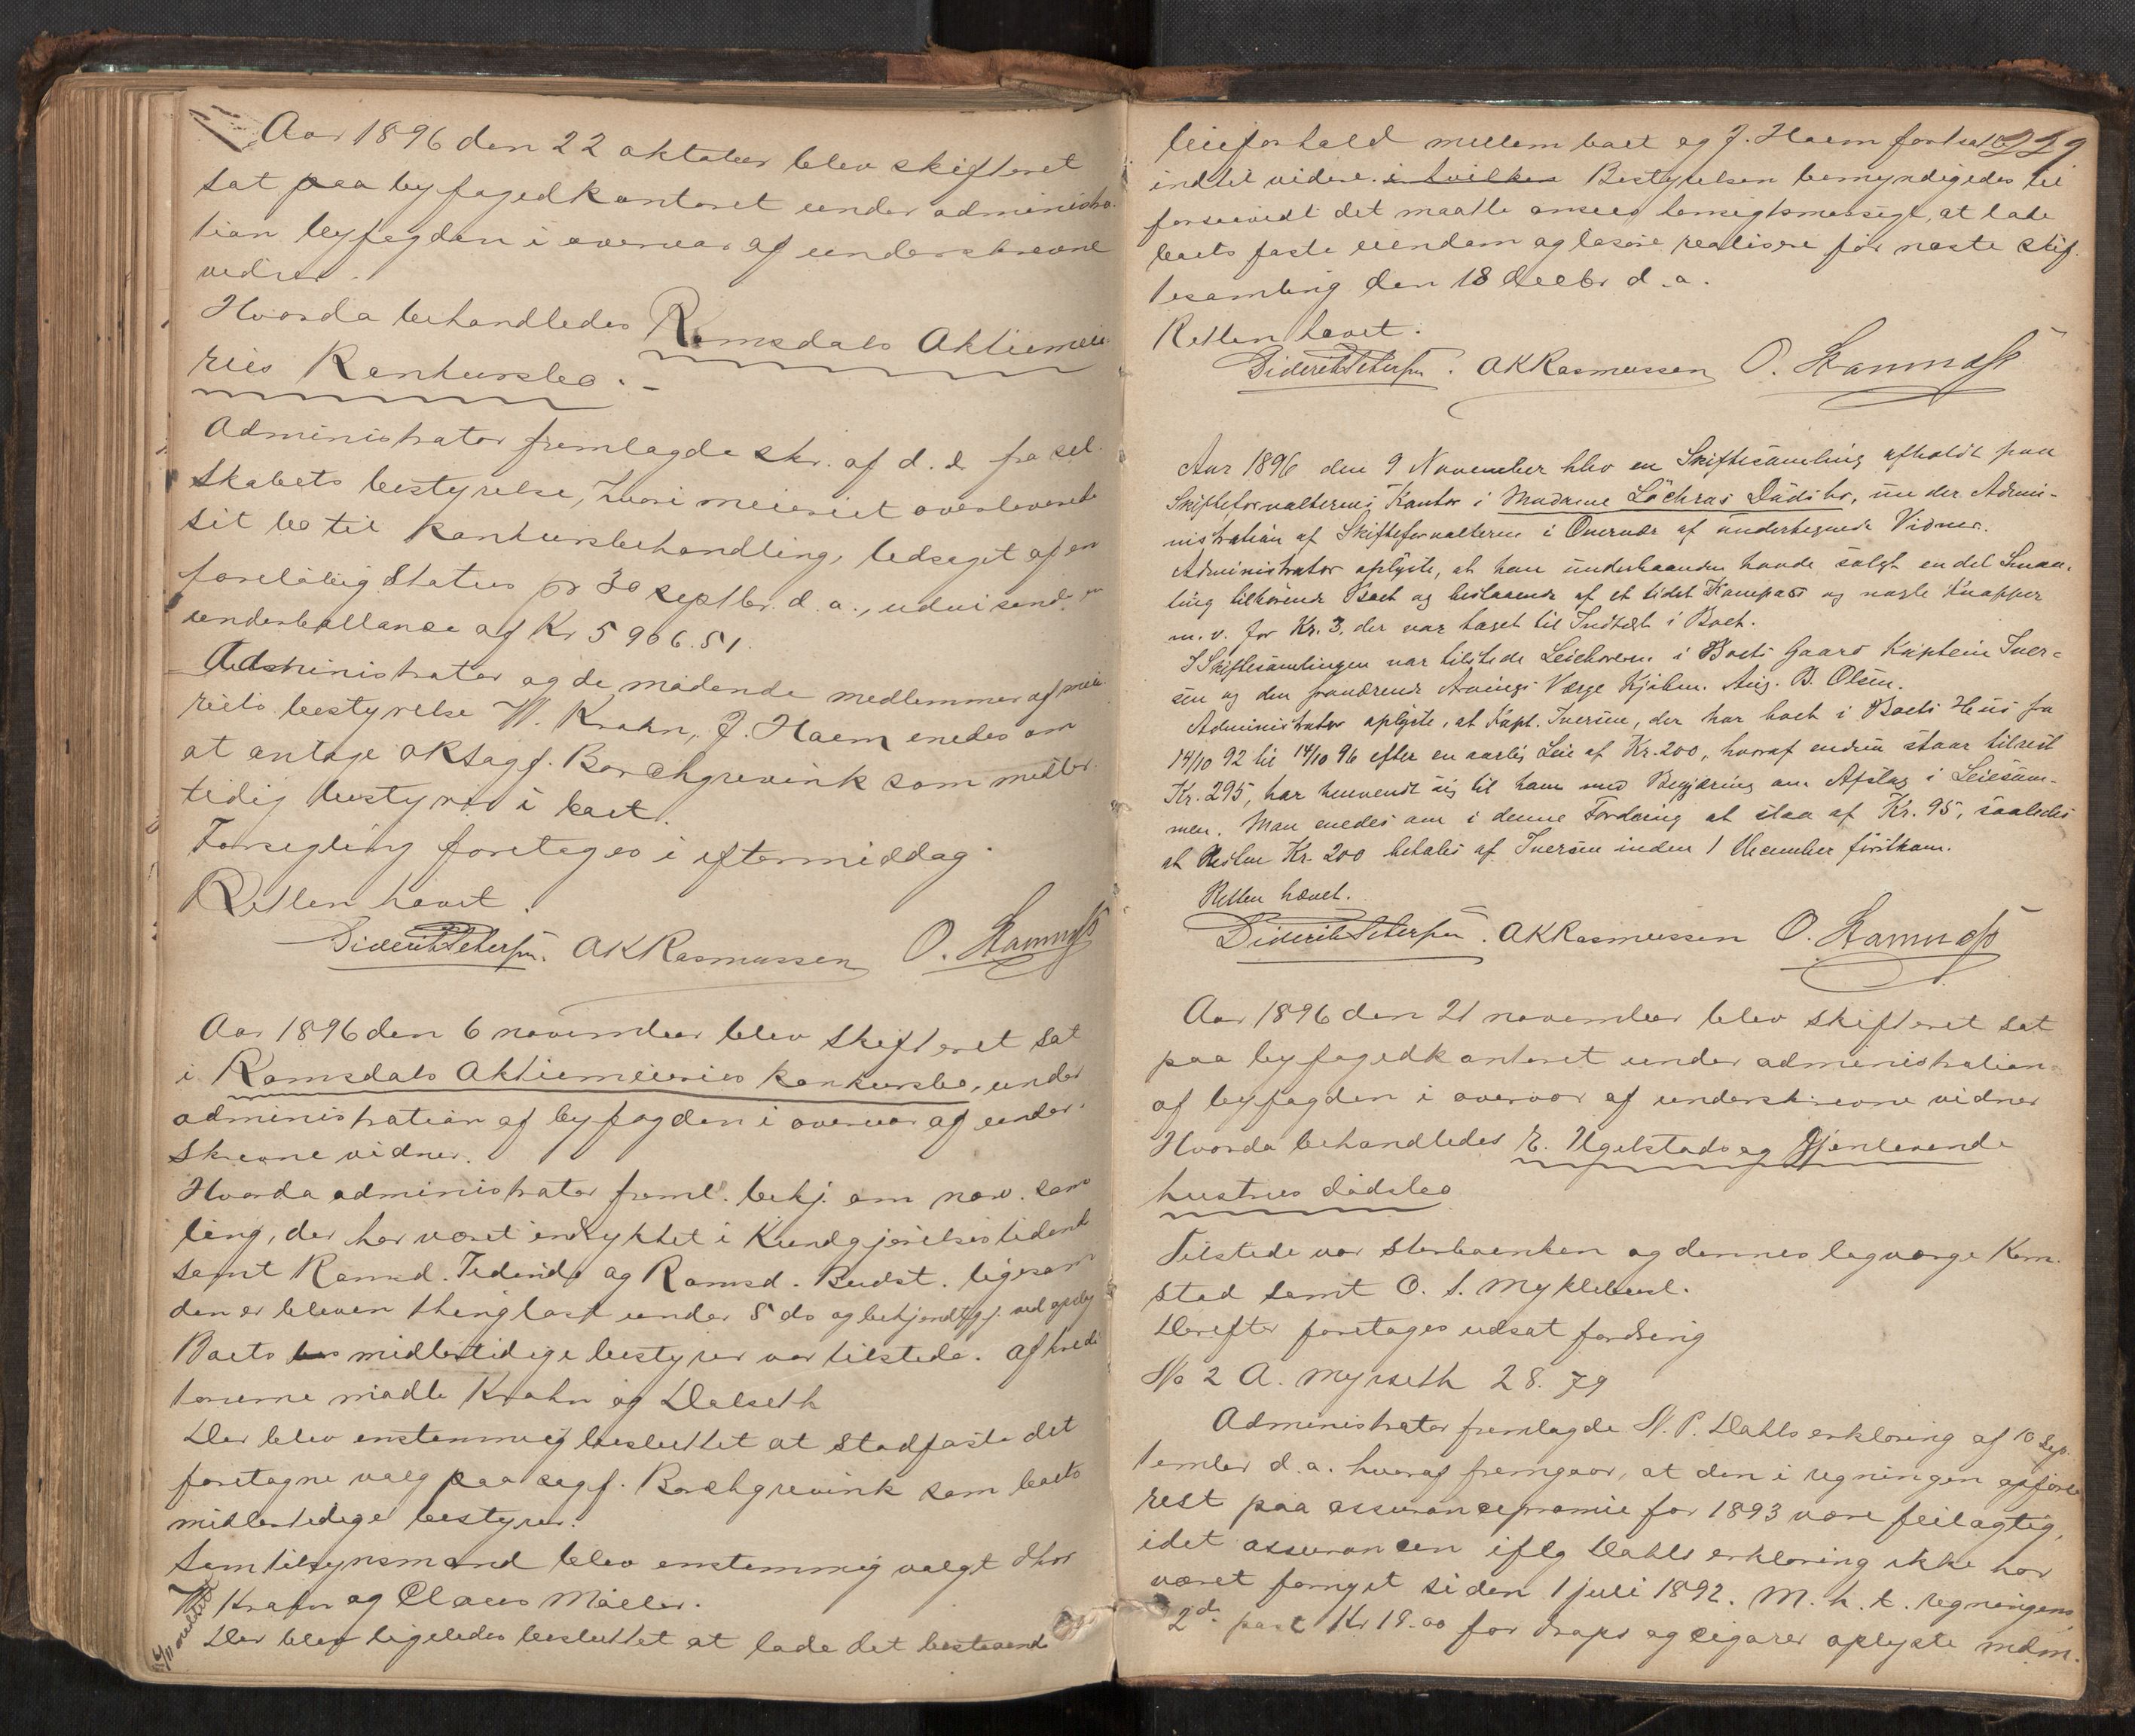 Aar 1896 den 22 oktober blev skifteret
sat paa byfogedkontoret under administra-
tion byfogden i overvær af underskrevne
vidner.
Hvorda behandledes Romsdals Aktiemeie-
ries Konkursbo. -
Administrator fremlagde skr. af d. d. fra sel-
skabets bestyrelse, hvori meieriet overleverede
sit bo til konkursbehandling, ledsaget af en
foreløbig status pr 30 septbr. d. a., udvisende en
underballance af Kr 5906.51.
Administrator og de mødende medlemmer af meie-
riets bestyrelse W. Krohn, J. Haem enedes om
at antage oRsagf. Borchgrevink som midler-
tidig bestyrer i boet.
Forsegling foretages i eftermiddag.
Retten hævet.
Diderik Petersen. AKRasmussen O. Hamnes
Aar 1896 den 6 november blev skifteret sat
i Romsdals Aktiemeieries konkursbo, under
administration af byfogden i overvær af under-
skrevne vidner.
Hvorda administrator freml. bekj. om nærv. sam-
ling, der har været indrykket i Kundgjørelsestidende
samt Romsd. Tidende og Romsd. Budst. ligesom
den er bleven thinglæst under 5 ds og bekjendtgj. ved opslag
Boets midlertidige bestyrer var tilstede. Af kredi-
torerne mødte Krohn og Dalseth
Der blev enstemmig besluttet at stadfæste det
foretagne valg paa sagf. Borchgrevink som boets
midlertidige bestyrer.
Som tilsynsmænd blev enstemmig valgt Dhrr
W Krohn og Claus Møller.
Der blev ligeledes besluttet at lade det bestaaende
229
leieforhold mellem boet og J. Haem fortsætte
indtil videre. i hvilken Bestyrelsen bemyndigedes til
forsaavidt det maatte ansees hensigtsmæssigt, at lade
boets faste eiendom og løsøre realisere før næste skif-
tesamling den 18 Decbr d. a.
Retten hævet.
Diderik Petersen. AKRasmussen O. Hamnes
Aar 1896 den 9 November blev en Skiftesamling afholdt paa
Skifteforvalterens Kontor i Madame Löchras Dödsbo, under Admi-
nistration af Skifteforvalteren i Overvær af undertegnede Vidner.
Administrator oplyste, at han underhaanden havde solgt en del Smaa-
ting tilhørende Boet og bestaaende af et lidet Kompas og nogle Knapper
m. v. for Kr. 3, der var taget til Indtægt i Boet.
I Skiftesamlingen var tilstede Leieboeren i Boets Gaard Kaptein Iver-
sen og den fraværende Arvings Værge Kjøbm. Aug. B. Olsen.
Administrator oplyste, at Kapt. Iversen, der har boet i Boets Hus fra
14/10 92 til 14/10 96 efter en aarlig Leie af Kr. 200, hvoraf endnu staar tilrest
Kr. 295, har henvendt sig til ham med Begjæring om Afslag i Leiesum-
men. Man enedes om i denne Fordring at slaa af Kr. 95, saaledes
at Resten Kr. 200 betales af Iversen inden 1 December førstkom.
Retten hævet.
Diderik Petersen. AKRasmussen O. Hamnes
Aar 1896 den 21 november blev skifteret sat
paa byfogedkontoret under administration
af byfogden i overvær af underskrevne vidner
Hvorda behandledes E. Ugelstads og Gjenlevende
hustrus dødsbo
Tilstede var sterboenken og dennes lagværge Kom-
stad samt O. S. Myklebust.
Derefter foretages udsat fordring
No 2 A. Myrseth 28.79
Administrator fremlagde N. P. Dahls erklæring af 10 Sep-
tember d. a. hvoraf fremgaar, at den i regningen opførte
rest paa assurancepræmie for 1893 være feilagtig,
idet assurancen iflg Dahls erklæring ikke har
været fornyet siden 1 juli 1892. M. h. t. regningens
2d post Kr 19.00 for draps og cigarer oplyste mdm.